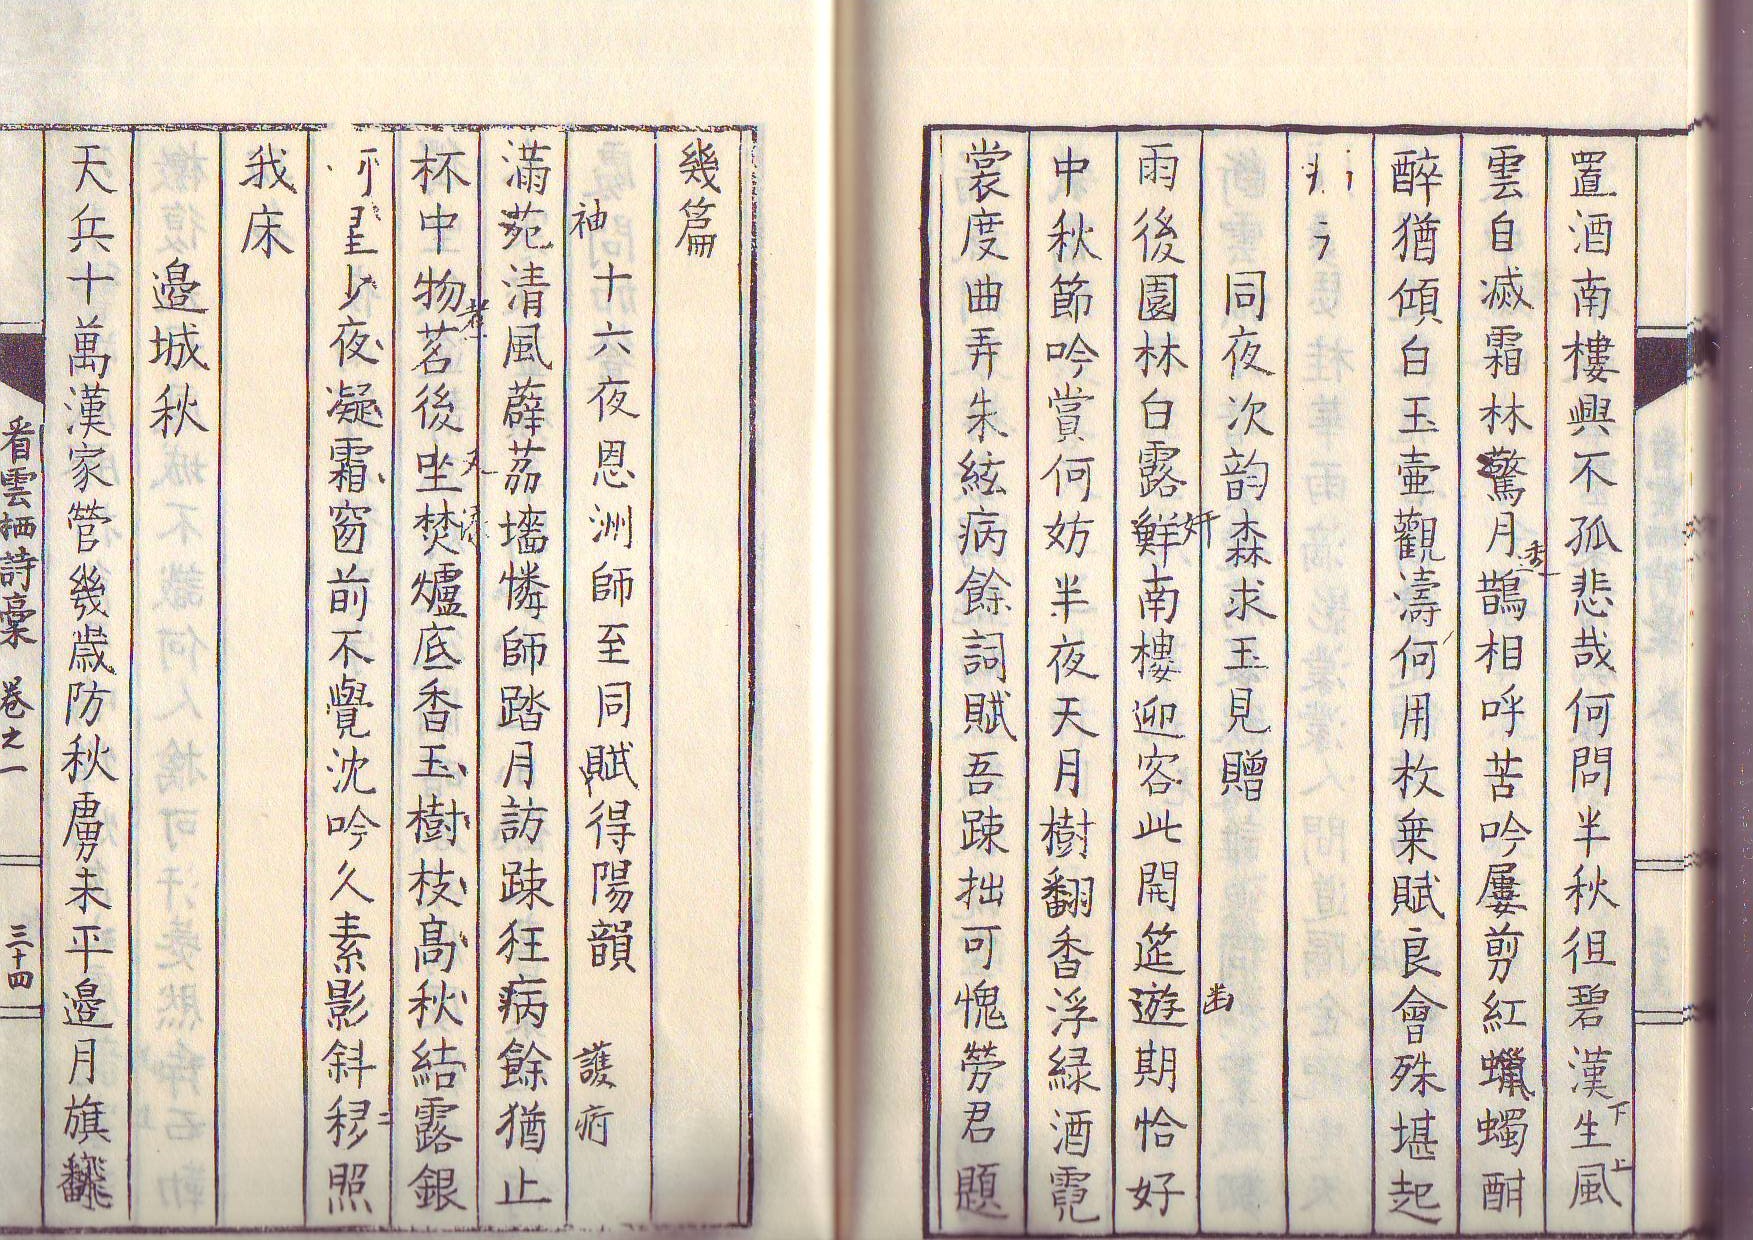 置酒南樓興不孤悲哉何問半秋徂碧漢生風
下
上
雲自滅霜林驚月鵲相呼苦吟屢剪紅蠟蠋酣
醉猶傾白玉壷觀濤何用枚乗賦良會殊堪起
同夜次韵森求玉見贈
雨後園林白露鮮南樓迎客此開筵遊期恰好
中秋節吟賞何妨半夜天月樹翻香浮緑酒霓
裳度曲弄朱絃病餘詞賦吾踈拙可愧勞君題
幾篇
十六夜恩洲師至同賦得陽韻
滿苑清風薜荔墻憐師踏月訪踈狂病餘猶止
杯中物茗後坐焚爐底香玉樹枝高秋結露銀
夜凝霜窗前不覺沈吟久素影斜移照
我床
邊城秋
天兵十萬漢家營幾歳防秋虜未平邊月旗
看雲栖詩稾 卷之一 三十四